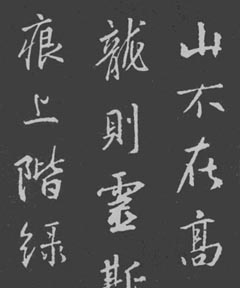 山不在高
龍則靈斯
痕上階綠